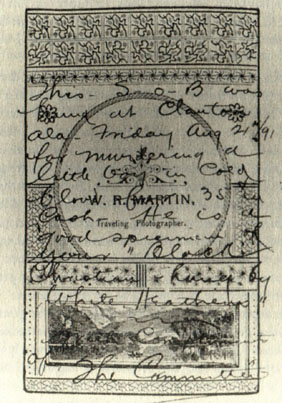 This S-O-B was
hung at Clanton
Ala. Friday Aug 21st/91
for murdering a
little boy in Cold
blood for 35¢ in
W. R. MARTIN,
Cash. He is a
Traveling Photographer.
good specimen of
your "Black
Christian hung by
White Heathens"
With Compliments
of The Committee